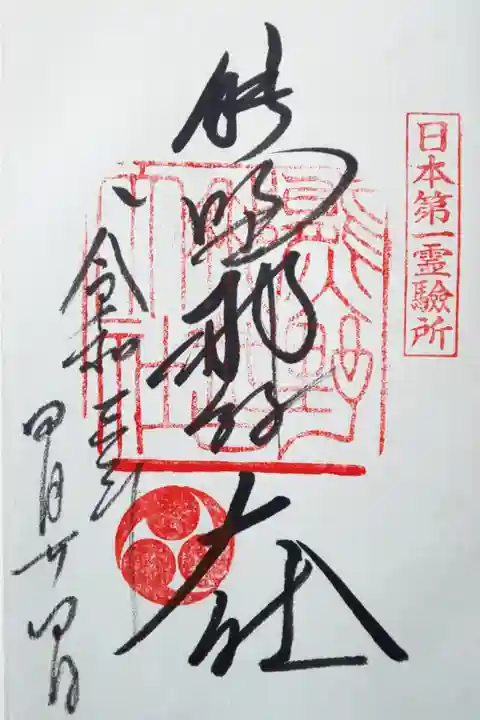 日本第一霊驗所
熊野那智大社
令和三年
四月廿四日